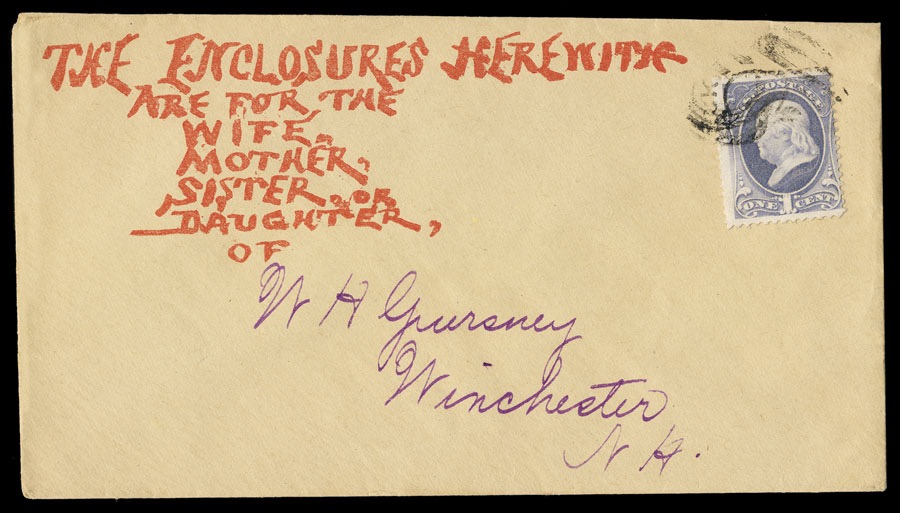 THE ENCLOSURES HEREWITH
ARE FOR THE
WIFE,
MOTHER,
SISTER, OR
DAUGHTER,
OF
POSTAGE
ONE 1 CENT
W H Gursney
Winchester
N H.